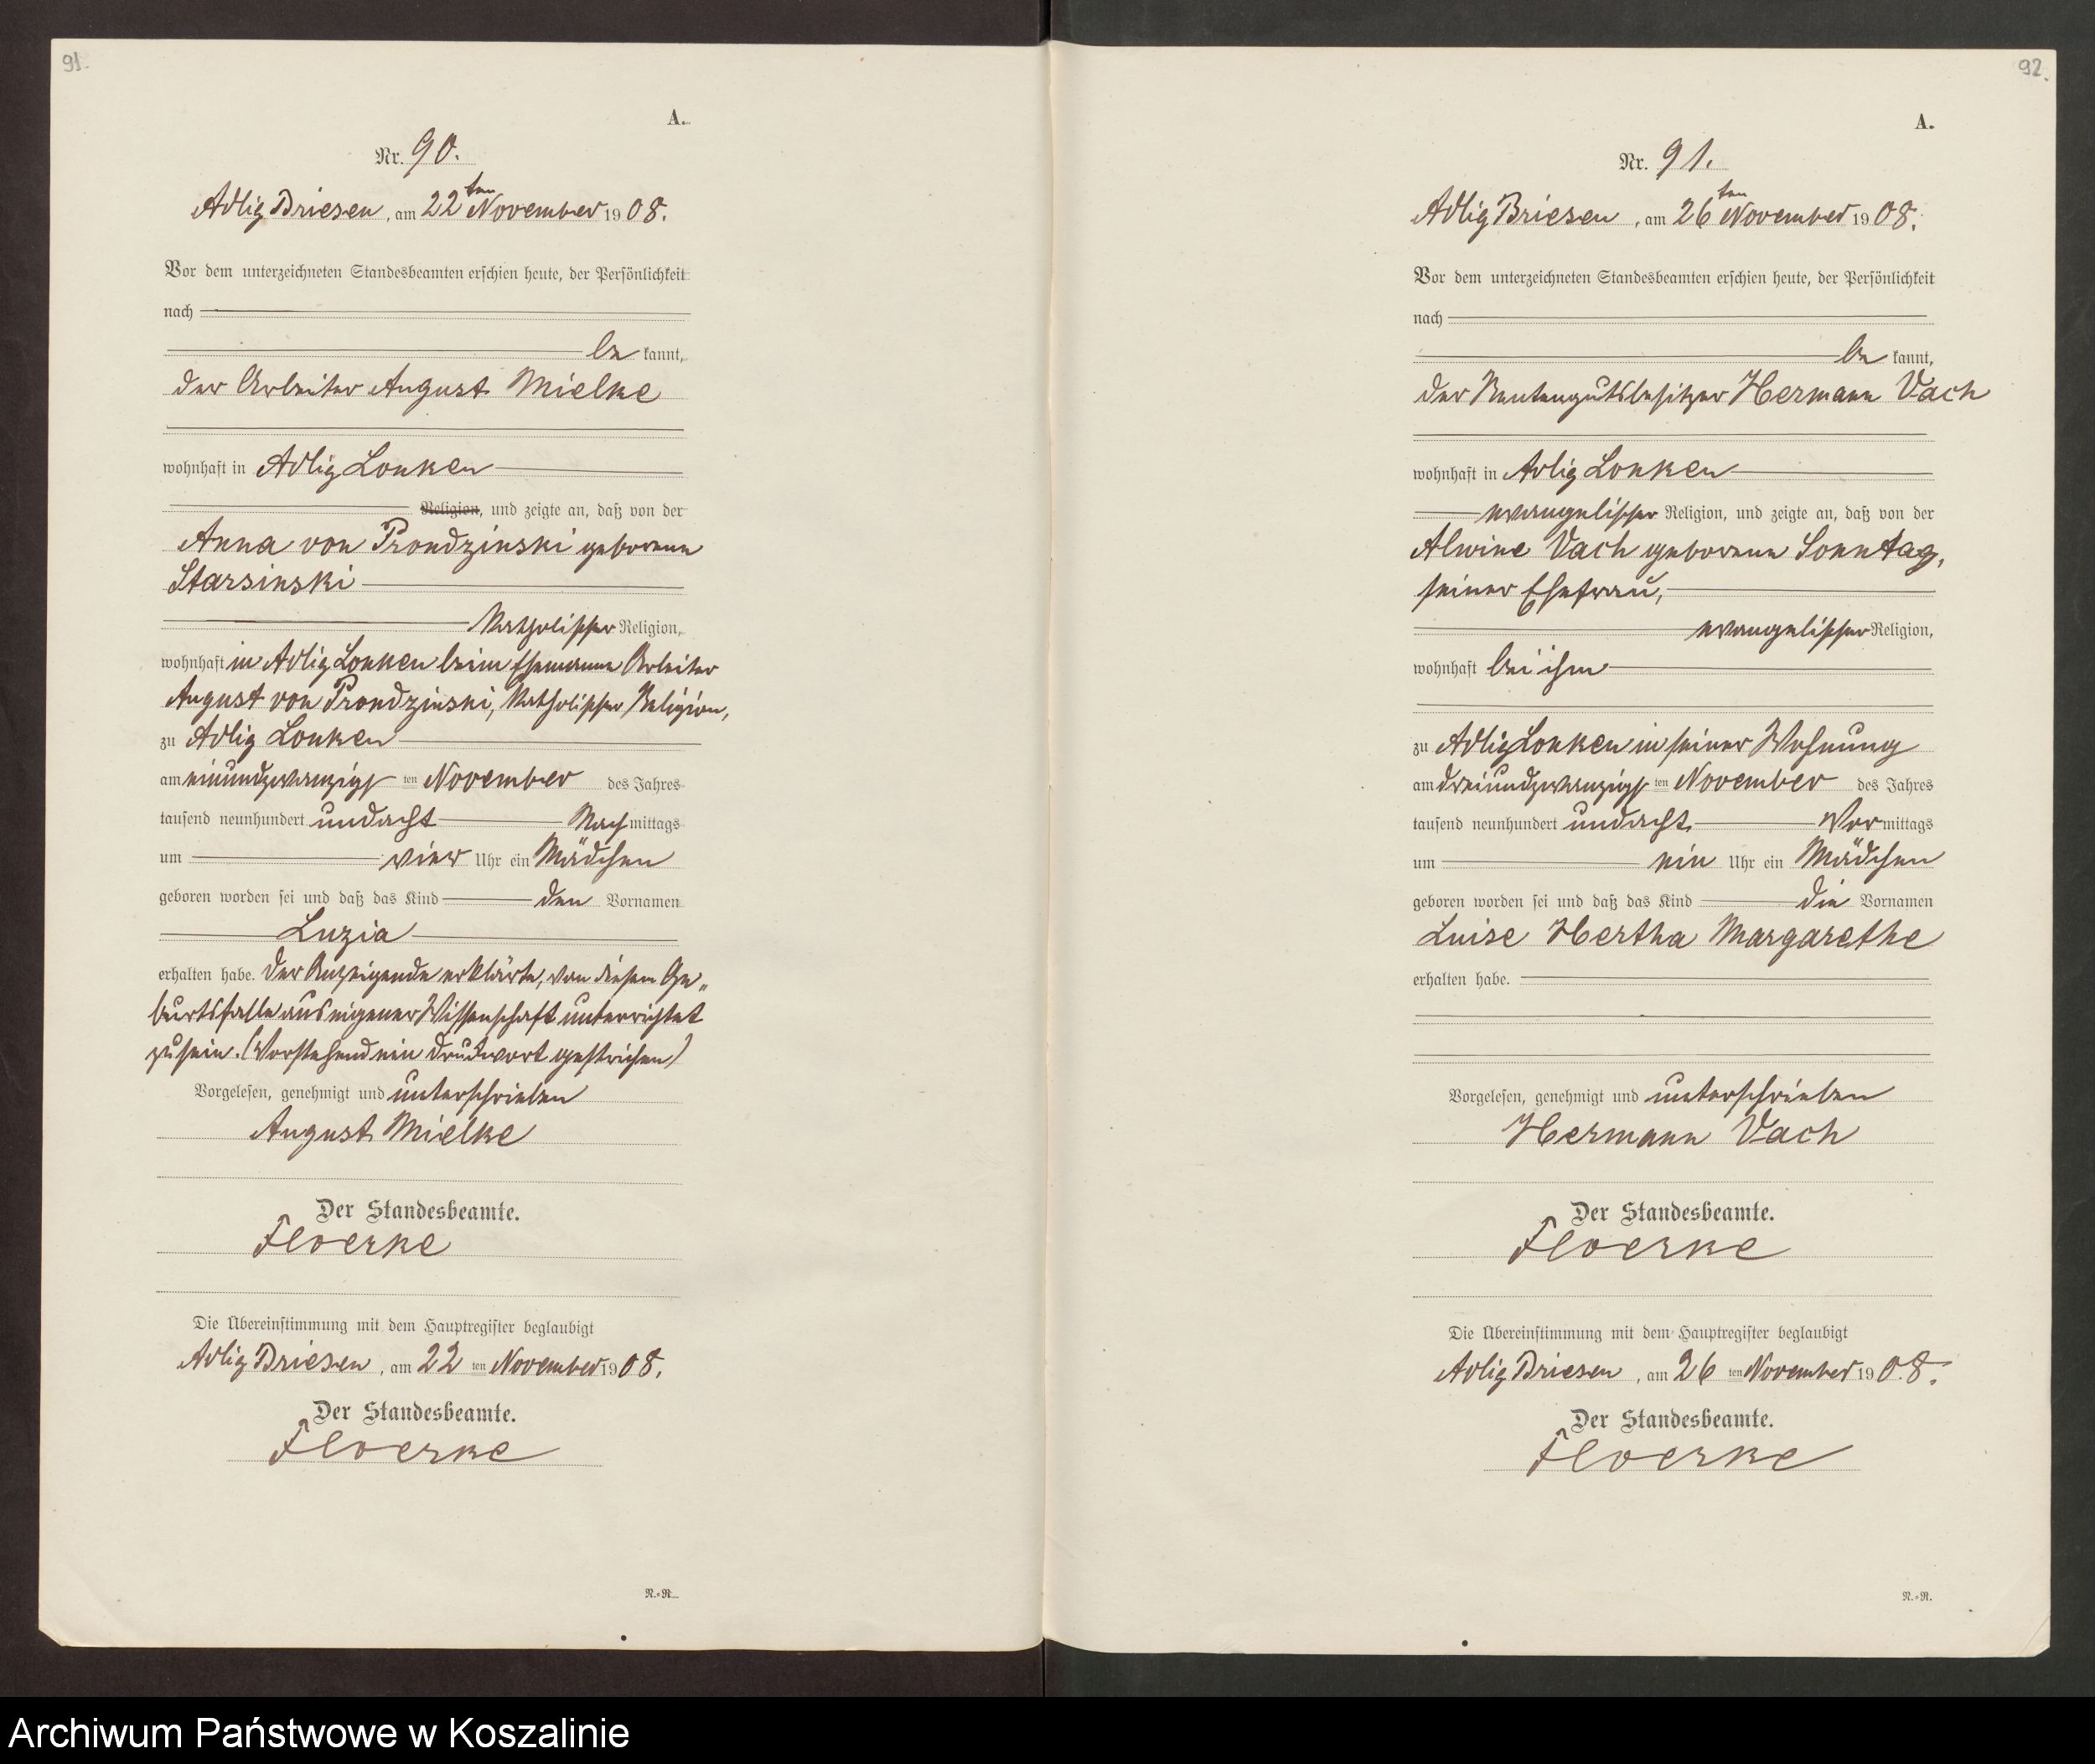 91.
A.
Nr. 90.
Adlig Briesen, am 22ten November 1908.
Vor dem unterzeichneten Standesbeamten erschien heute, der Persönlichkeit
nach
be kannt,
der Arbeiter August Mielke
wohnhaft in Adlig Lonken
Religion, und zeigte an, daß von der
Anna von Prondzinski geborene
Starsinski
katholischer Religion,
wohnhaft in Adlig Lonken beim Ehemanne Arbeiter
August von Prondzinski, katholischer Religion,
zu Adlig Lonken
am einundzwanzigsten November des Jahres
tausend neunhundert undacht Nachmittags
um vier Uhr ein Mädchen
geboren worden sei und daß das Kind den Vornamen
Luzia
erhalten habe. Der Anzeigende erklärte, von diesem Ge„
burtsfalle aus eigener Wissenschaft unterrichtet
zu sein. (Vorstehend ein Druckwort gestrichen)
Vorgelesen, genehmigt und unterschrieben
August Mielke
Der Standesbeamte.
Floerke
Die Übereinstimmung mit dem Hauptregister beglaubigt
Adlig Briesen, am 22ten November 1908.
Der Standesbeamte.
Floerke
N.=N.
92.
A.
Nr. 91.
Adlig Briesen, am 26ten November 1908.
Vor dem unterzeichneten Standesbeamten erschien heute, der Persönlichkeit
nach
be kannt,
der Rentengutsbesitzer Hermann Vach
wohnhaft in Adlig Lonken
evangelischer Religion, und zeigte an, daß von der
Alwine Vach geborene Sonntag,
seiner Ehefrau,
evangelischer Religion,
wohnhaft bei ihm
zu Adlig Lonken in seiner Wohnung
am dreiundzwanzigsten November des Jahres
tausend neunhundert undacht Vormittags
um ein Uhr ein Mädchen
geboren worden sei und daß das Kind die Vornamen
Luise Hertha Margarethe
erhalten habe.
Vorgelesen, genehmigt und unterschrieben
Hermann Vach
Der Standesbeamte.
Floerke
Die Übereinstimmung mit dem Hauptregister beglaubigt
Adlig Briesen, am 26ten November 1908.
Der Standesbeamte.
Floerke
N.=N.
Archiwum Państwowe w Koszalinie